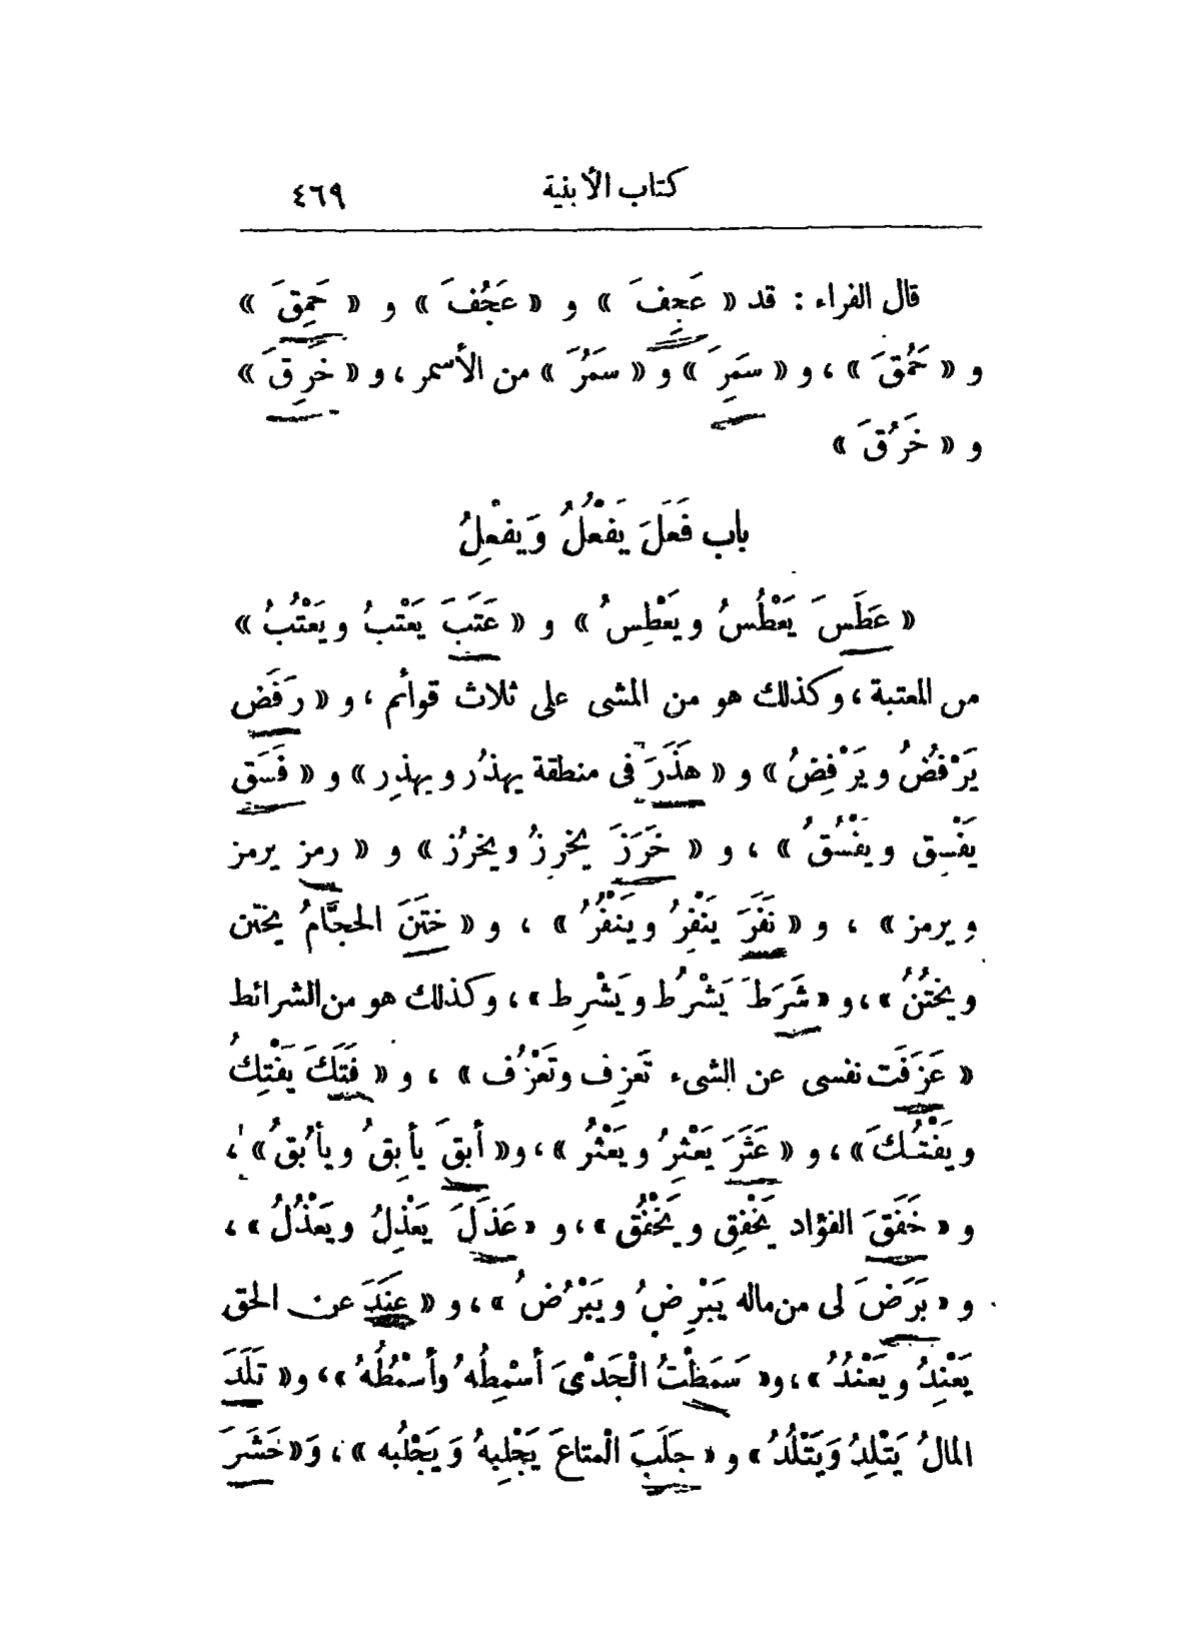 كتاب الأبنية ٤٦٩
قال الفراء : قد « عَجِفَ » و « عَجُفَ » و « حَمِقَ »
و « حَمُقَ » ، و « سَمِرَ » و « سَمُرَ » من الأسمر ، و « خَرِقَ »
و « خَرُقَ »
باب فَعَلَ يَفْعُلُ وَيفْعِلُ
« عَطَسَ يَعْطُسُ ويَعْطِسُ » و « عَتَبَ يَعْتبُ ويَعْتُبُ »
من المعتبة ، وكذلك هو من المشى على ثلاث قوائم ، و « رَفَض
يَرْفُضُ ويَرْفِضُ » و « هَذَرَ فى منطقة يهذُر ويهذِر » و « فَسَق
يَفْسِق ويفْسُقُ » ، و « خَرَزَ يخرِزُ ويخرُز » و « رمز يرمز
ويرمز » ، و « نَفَرَ يَنْفِرُ ويَنفُرُ » ، و « ختَنَ الحجَّامُ يختن
ويختُنُ » ، و « شَرَطَ يَشْرُط ويَشْرِط » ، وكذلك هو من الشرائط
« عَزَفَت نفسى عن الشىء تَعزِف وتَعْزُف » ، و « فَتَكَ يَفْتِكُ
ويَفْتُكَ » ، و « عَثَرَ يَعْثِرُ ويَعْثُرُ » ، و « أبقَ يأبِقُ ويأبُقُ » ،
و « خَفَقَ الفؤاد يَخْفِق ويَخْفُق » ، و « عَذَلَ يَعْذِلُ ويَعْذُلُ » ،
و « بَرَضَ لى من ماله يَبْرِضُ ويَبْرُضُ » ، و « عَنَدَ عن الحق
يَعْنِدُ ويَعْنُدُ » ، و « سَمَطْتُ الْجَدْىَ أسْمِطُه وأسْمُطُهُ » ، و « تَلَدَ
المالُ يَتْلِدُ وَيَتْلُدُ » و « جَلَبَ الْمتاعَ يَجْلِبهُ وَيَجْلُبه » ، وَ « حَشَرَ